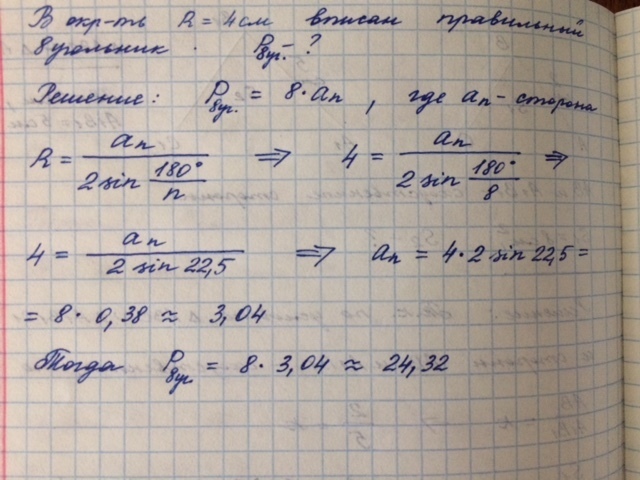 В окр-ть R = 4 см вписан правильный
8угольник. P₈уг. - ?
Решение: P₈уг. = 8 · aₙ, где aₙ - сторона
R = aₙ / (2 sin 180°/n) ⇒ 4 = aₙ / (2 sin 180°/8) ⇒
4 = aₙ / (2 sin 22,5) ⇒ aₙ = 4 · 2 sin 22,5 =
= 8 · 0,38 ≈ 3,04
Тогда P₈уг. = 8 · 3,04 ≈ 24,32